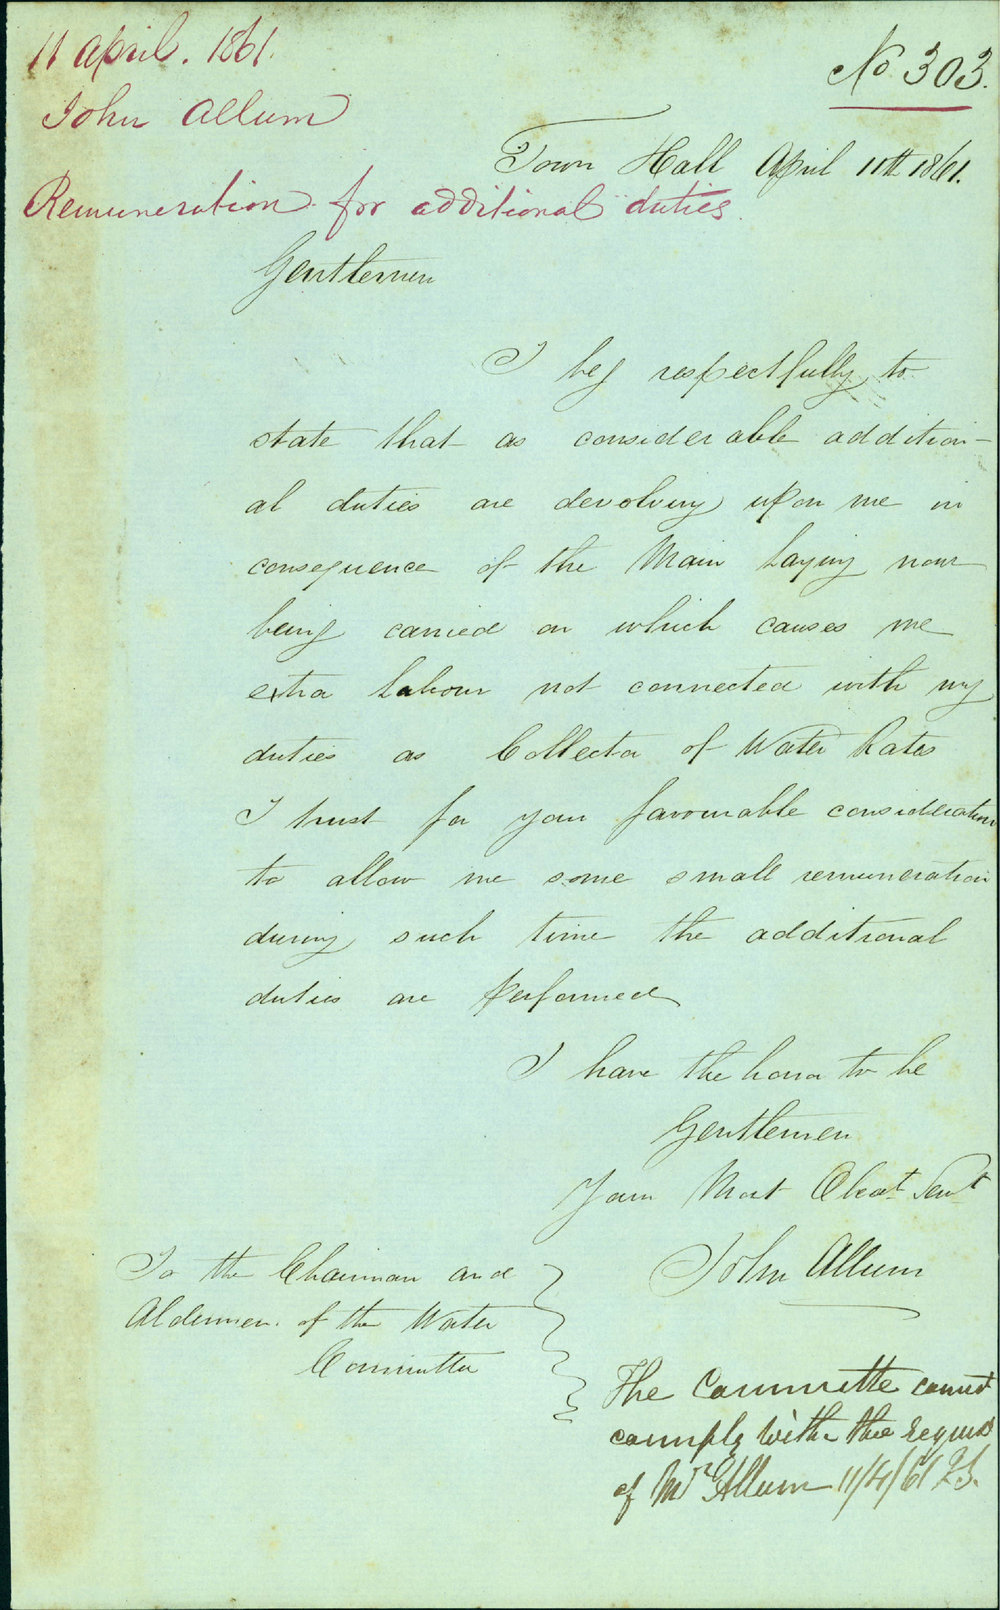 11 April. 1861.
No 303.
John Allum
Town Hall April 11th 1861.
Remuneration for additional duties
Gentlemen
I beg respectfully to
state that as considerable addition-
al duties are devolving upon me in
consequence of the Main laying now
being carried on which causes me
extra labour not connected with my
duties as Collector of Water Rates
I trust for your favourable consideration
to allow me some small remuneration
during such time the additional
duties are performed
I have the honor to be
Gentlemen
Your Most Obedt Servt
John Allum
To the Chairman and
Aldermen of the Water
Committee
The Committee cannot
comply with the request
of Mr Allum 11/4/61